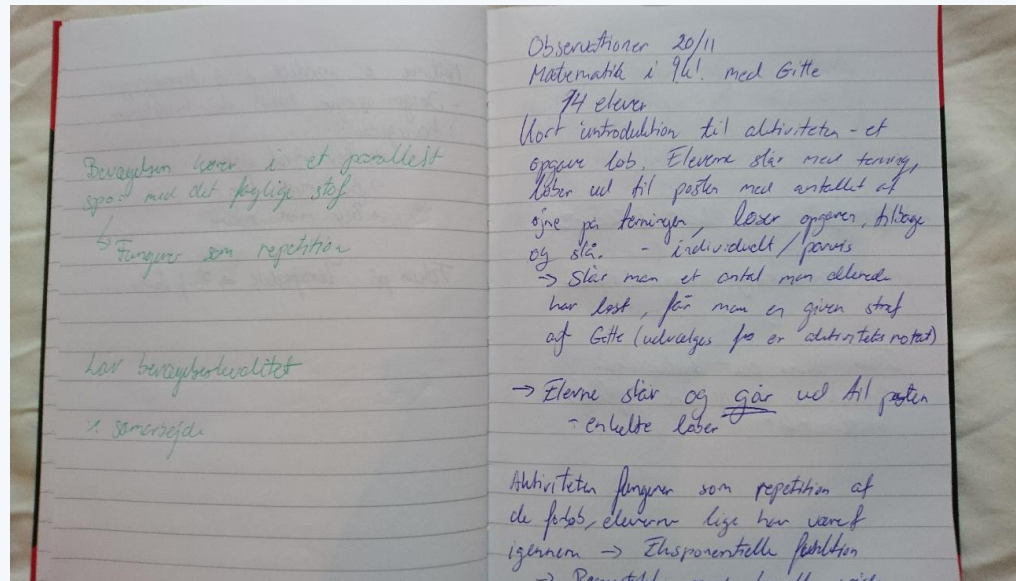 Bevægelsen kører i et parallelt
spor med det faglige stof
↳ Fungerer som repetition
Lav bevægelseskvalitet
÷ samarbejde
Observationer 20/11
Matematik i 9kl. med Gitte
14 elever
Kort introduktion til aktiviteten - et
opgave løb. Eleverne slår med terning,
løber ud til posten med antallet af
øjne på terningen, løser opgaven, tilbage
og slå. - individuelt / parvis
→ Slår man et antal man allerede
har løst, får man en given straf
af Gitte (udvælges fra et aktivitetsnotat)
→ Eleverne slår og går ud til posten
- enkelte løber
Aktiviteten fungerer som repetition af
de forløb, eleverne lige har været
igennem → Eksponentielle funktion